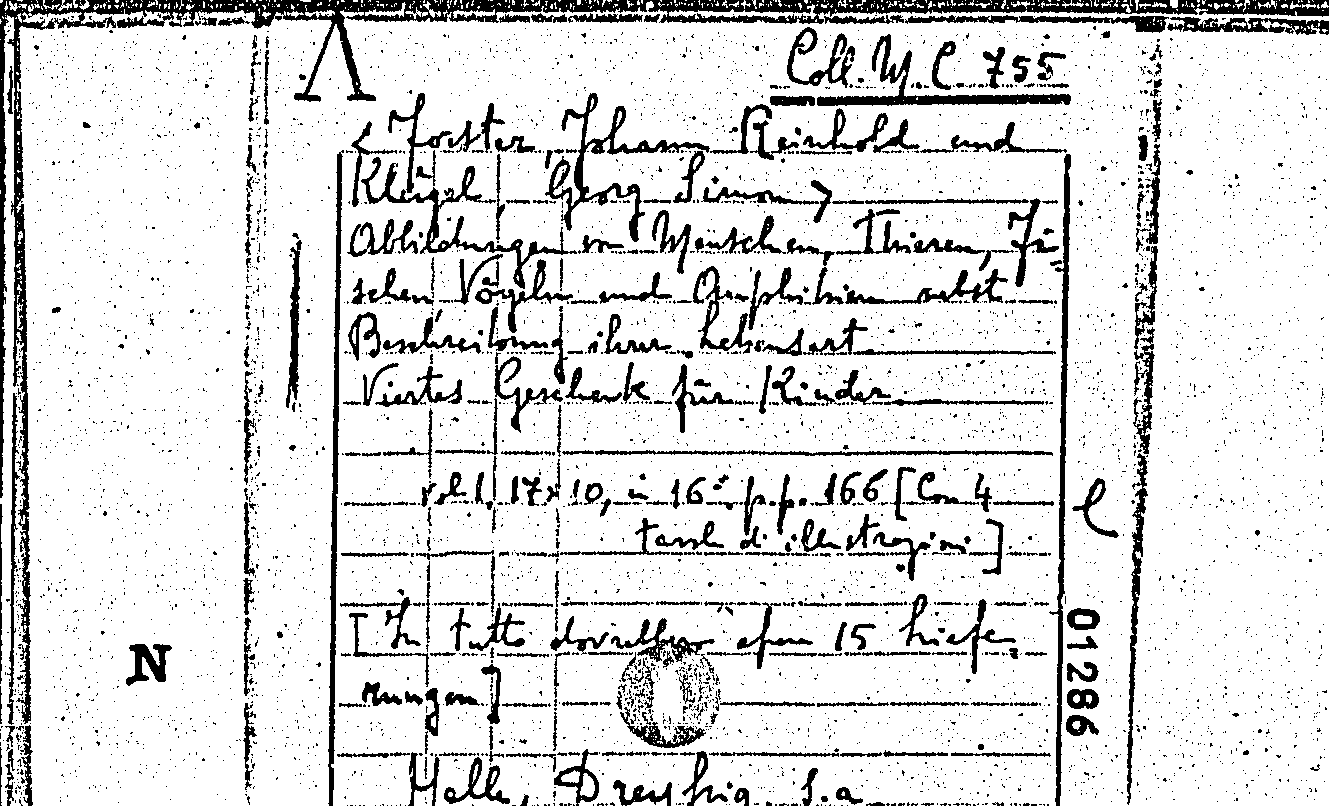 Λ
Coll. M. C. 755
< Forster, Johann Reinhold und
Klügel, Georg Simon >
Abbildungen von Menschen, Thieren, Fi=
schen, Vögeln und Amphibien nebst
Beschreibung ihrer Lebensart.
Viertes Geschenk für Kinder.
vol 1, 17x10, in 16° p.p. 166 [Con 4
tavole di illustrazioni]
e
[In tutto dovrebbero 15 Liefe=
rungen]
N
01286
Halle, Dreyssig. s.a